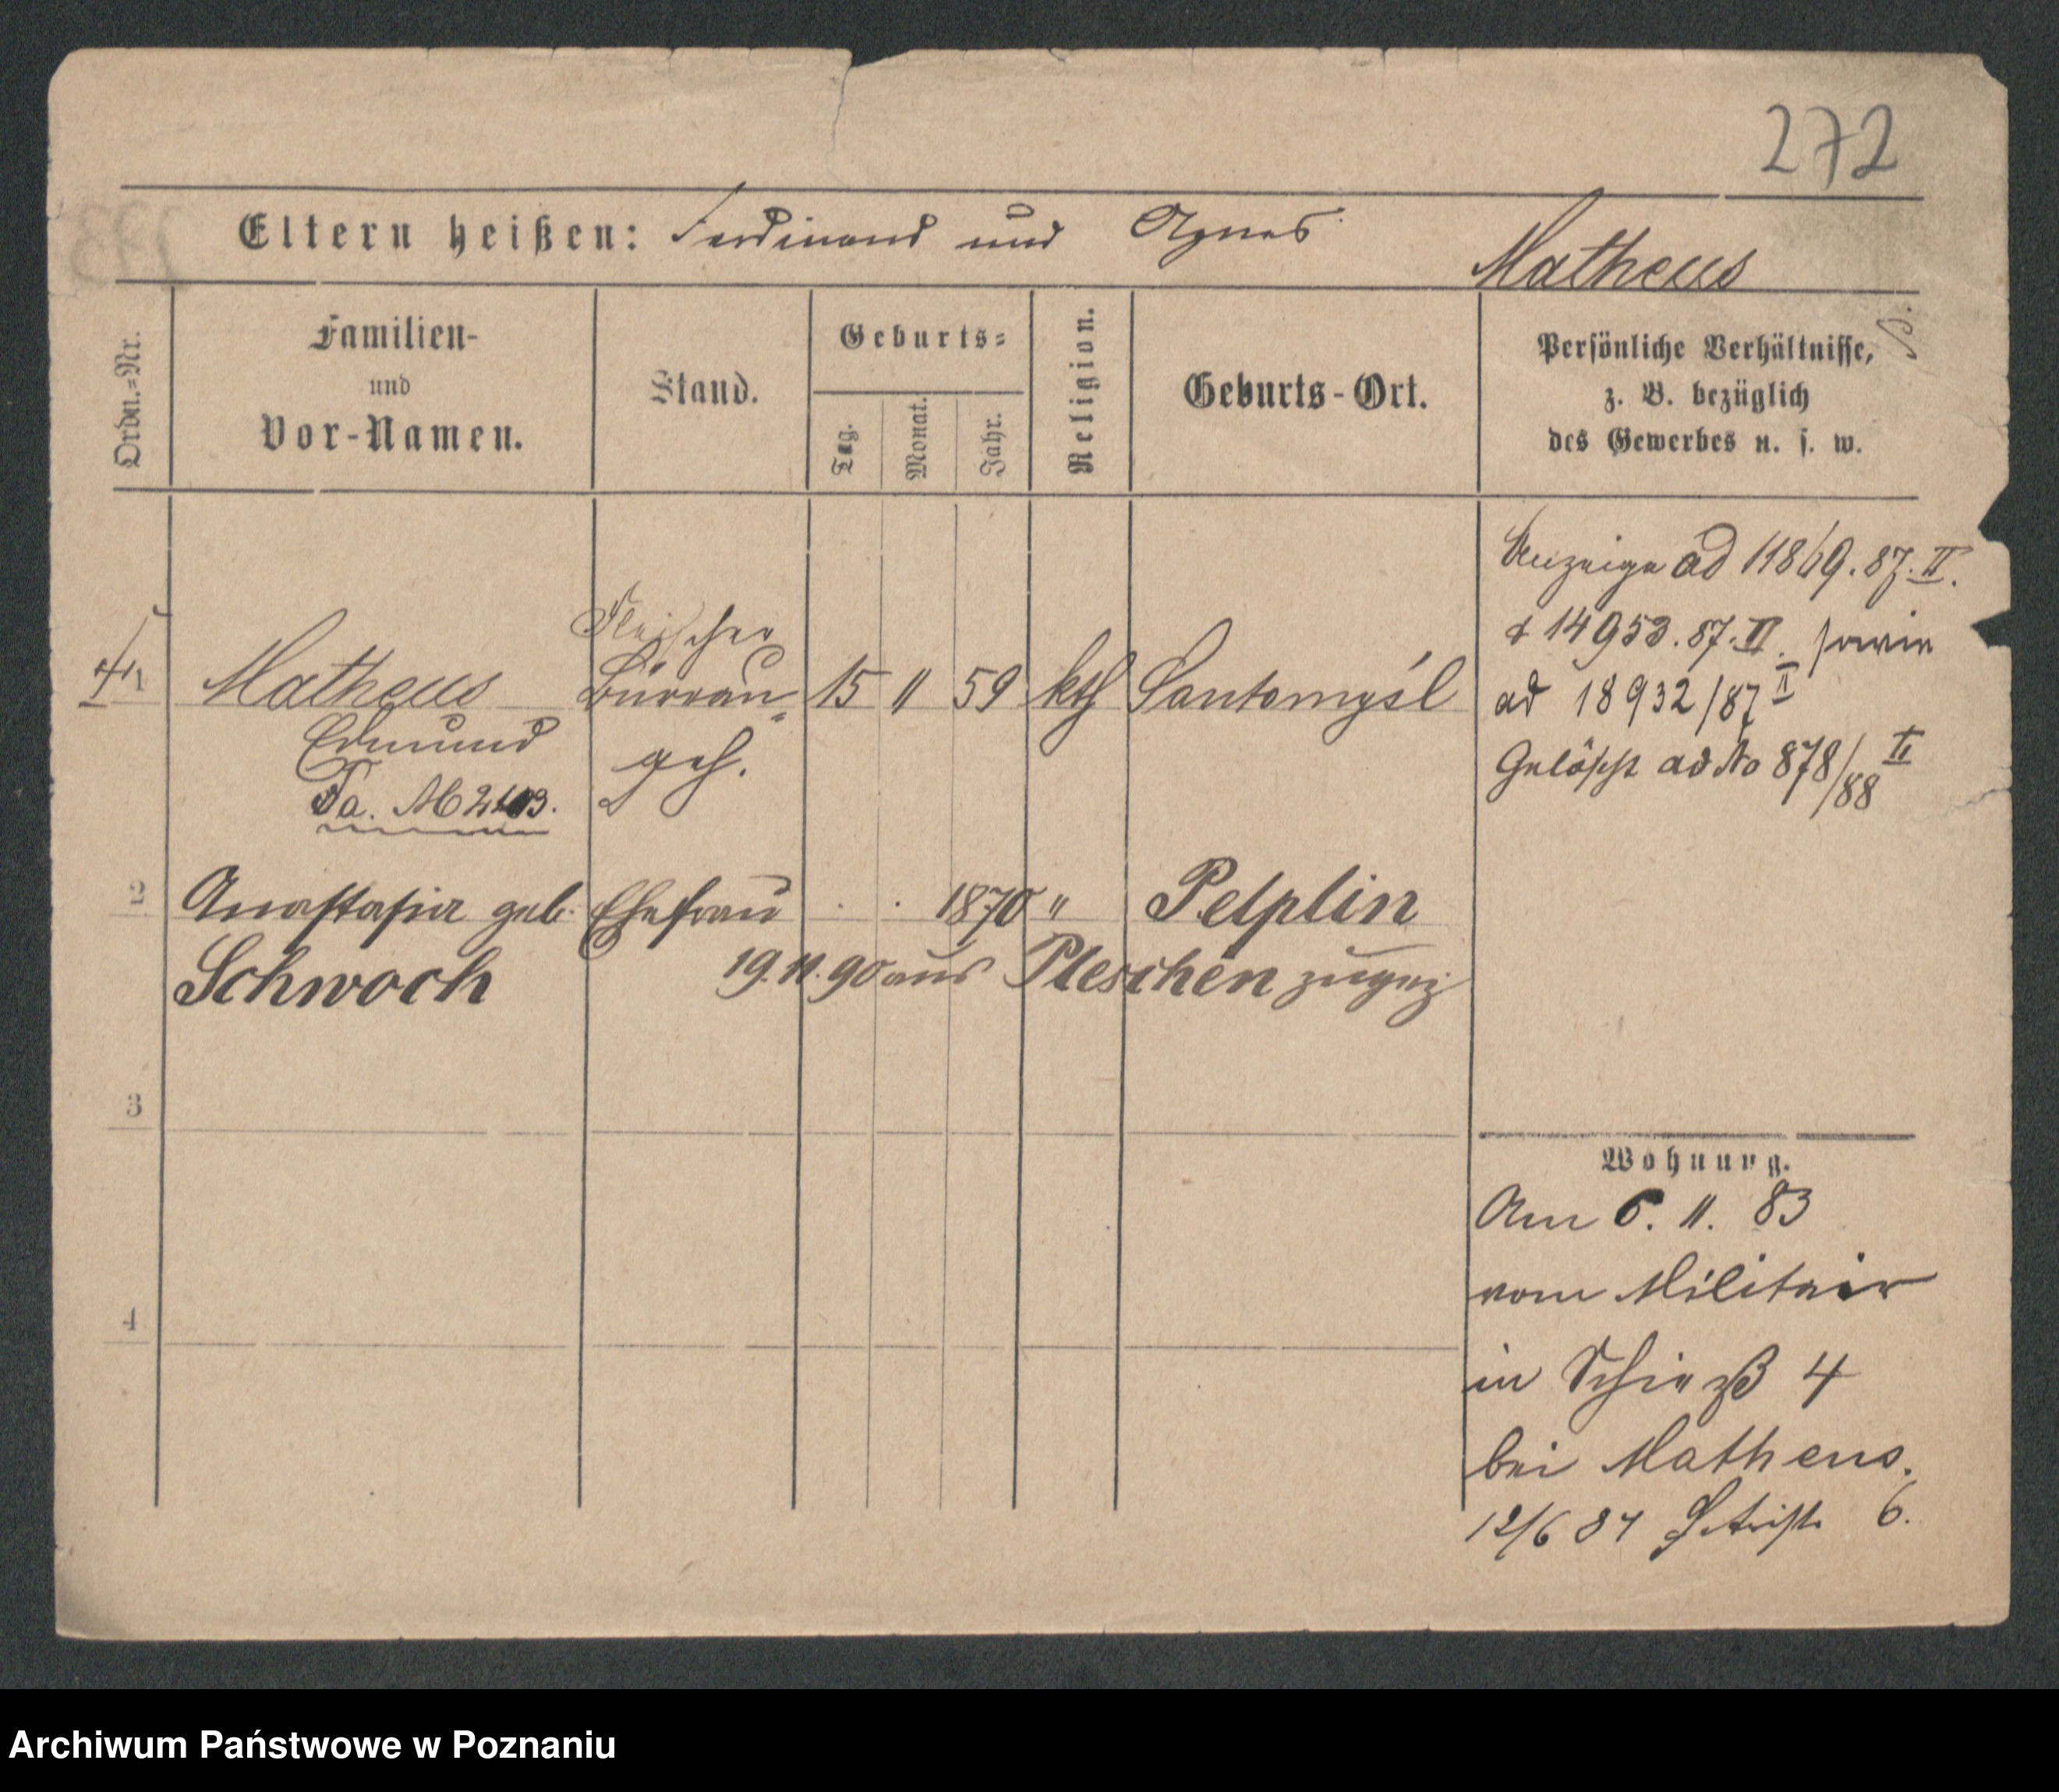 272
Eltern heißen: Ferdinand und Agnes
Matheus
Ordn.=Nr.
Familien-
und
Vor-Namen.
Stand.
Geburts=
Tag.
Monat.
Jahr.
Religion.
Geburts-Ort.
Persönliche Verhältnisse,
z. B. bezüglich
des Gewerbes u. s. w.
1 Matheus
Edmund
Pa. M 2403.
Fleischer
Bürrau-
geh.
15 11 59 kth Santomyśl
Anzeige ad 11869.87.II.
& 14953.87.II. sowie
ad 18932/87 II
Gelöscht ad No 878/88 II
2 Anastasia geb. Ehefrau . . 1870 " Pelplin
Schwoch 19.11.90 aus Pleschen zugez
3
4
Wohnung.
Am 6. 11. 83
vom Militair
in Schießstr 4
bei Matheus.
12/6 84 6.
Archiwum Państwowe w Poznaniu